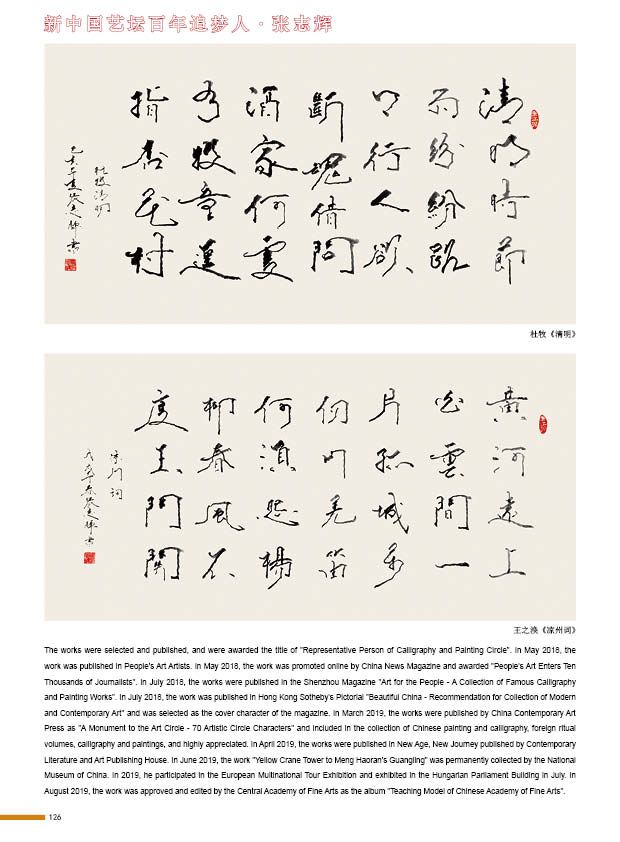 新中国艺坛百年追梦人·张志辉
清明時節
雨紛紛路
上行人欲
斷魂借問
酒家何處
有牧童遥
指杏花村
杜牧清明
杜牧《清明》
黄河遠上
白雲間一
片孤城萬
仞山羌笛
何須怨楊
柳春風不
度玉門關
凉州词
王之涣《凉州词》
The works were selected and published, and were awarded the title of "Representative Person of Calligraphy and Painting Circle". In May 2018, the
work was published in People's Art Artists. In May 2018, the work was promoted online by China News Magazine and awarded "People's Art Enters Ten
Thousands of Journalists". In July 2018, the works were published in the Shenzhou Magazine "Art for the People - A Collection of Famous Calligraphy
and Painting Works". In July 2018, the work was published in Hong Kong Sotheby's Pictorial "Beautiful China - Recommendation for Collection of Modern
and Contemporary Art" and was selected as the cover character of the magazine. In March 2019, the works were published by China Contemporary Art
Press as "A Monument to the Art Circle - 70 Artistic Circle Characters" and included in the collection of Chinese painting and calligraphy, foreign ritual
volumes, calligraphy and paintings, and highly appreciated. In April 2019, the works were published in New Age, New Journey published by Contemporary
Literature and Art Publishing House. In June 2019, the work "Yellow Crane Tower to Meng Haoran's Guangling" was permanently collected by the National
Museum of China. In 2019, he participated in the European Multinational Tour Exhibition and exhibited in the Hungarian Parliament Building in July. In
August 2019, the work was approved and edited by the Central Academy of Fine Arts as the album "Teaching Model of Chinese Academy of Fine Arts".
126